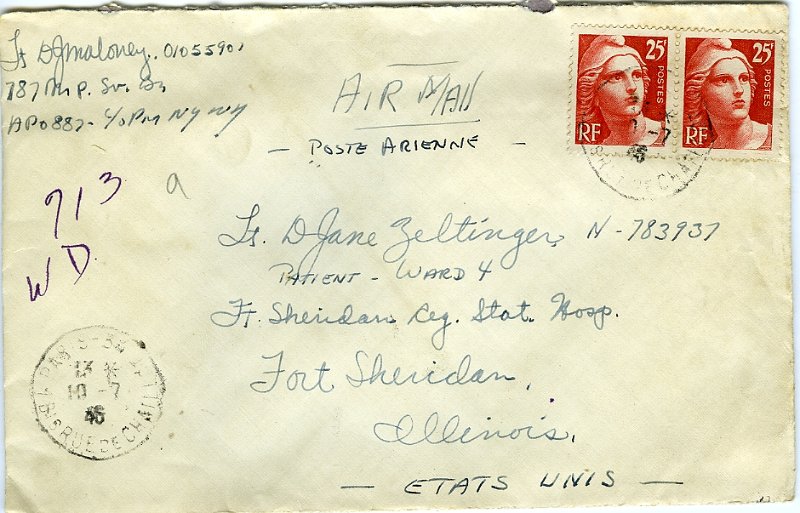 Lt DJMaloney. 01055901
787 M.P. Sv. Bn
APO 887 - c/o PM NY NY
AIR MAIL
- POSTE ARIENNE -
25F
POSTES
RF
25F
POSTES
RF
713
WD
a
Lt. D Jane Zeltinger, N-783937
PATIENT - WARD 4
Ft. Sheridan Reg. Stat. Hosp.
Fort Sheridan,
Illinois.
- ETATS UNIS -
PARIS
13 *
10 -7
46
RUE DE CHAILL
-7
46
DE CHAILL